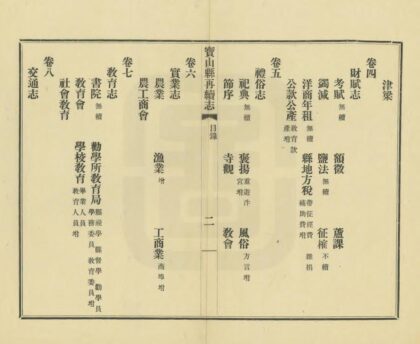 津梁
卷四
財賦志
考賦 無續 額徵 蘆課
蠲減 無續 鹽法 無續 征榷 不續
洋商年租 無續 縣地方稅 帶征經費 雜捐 補助費增
公款公產 教育款產增
卷五
禮俗志
祀典 無續 褒揚 重游泮宮增 風俗 方言增
節序 寺觀 教會
寶山縣再續志 目錄 二
卷六
實業志
農業 漁業 增 工商業 商埠增
農工商會
卷七
教育志
書院 無續 勸學所教育局 縣視學 縣督學 勸學員 學務委員 教育委員增
教育會 學校教育 學業人員 教育人員增
社會教育
卷八
交通志